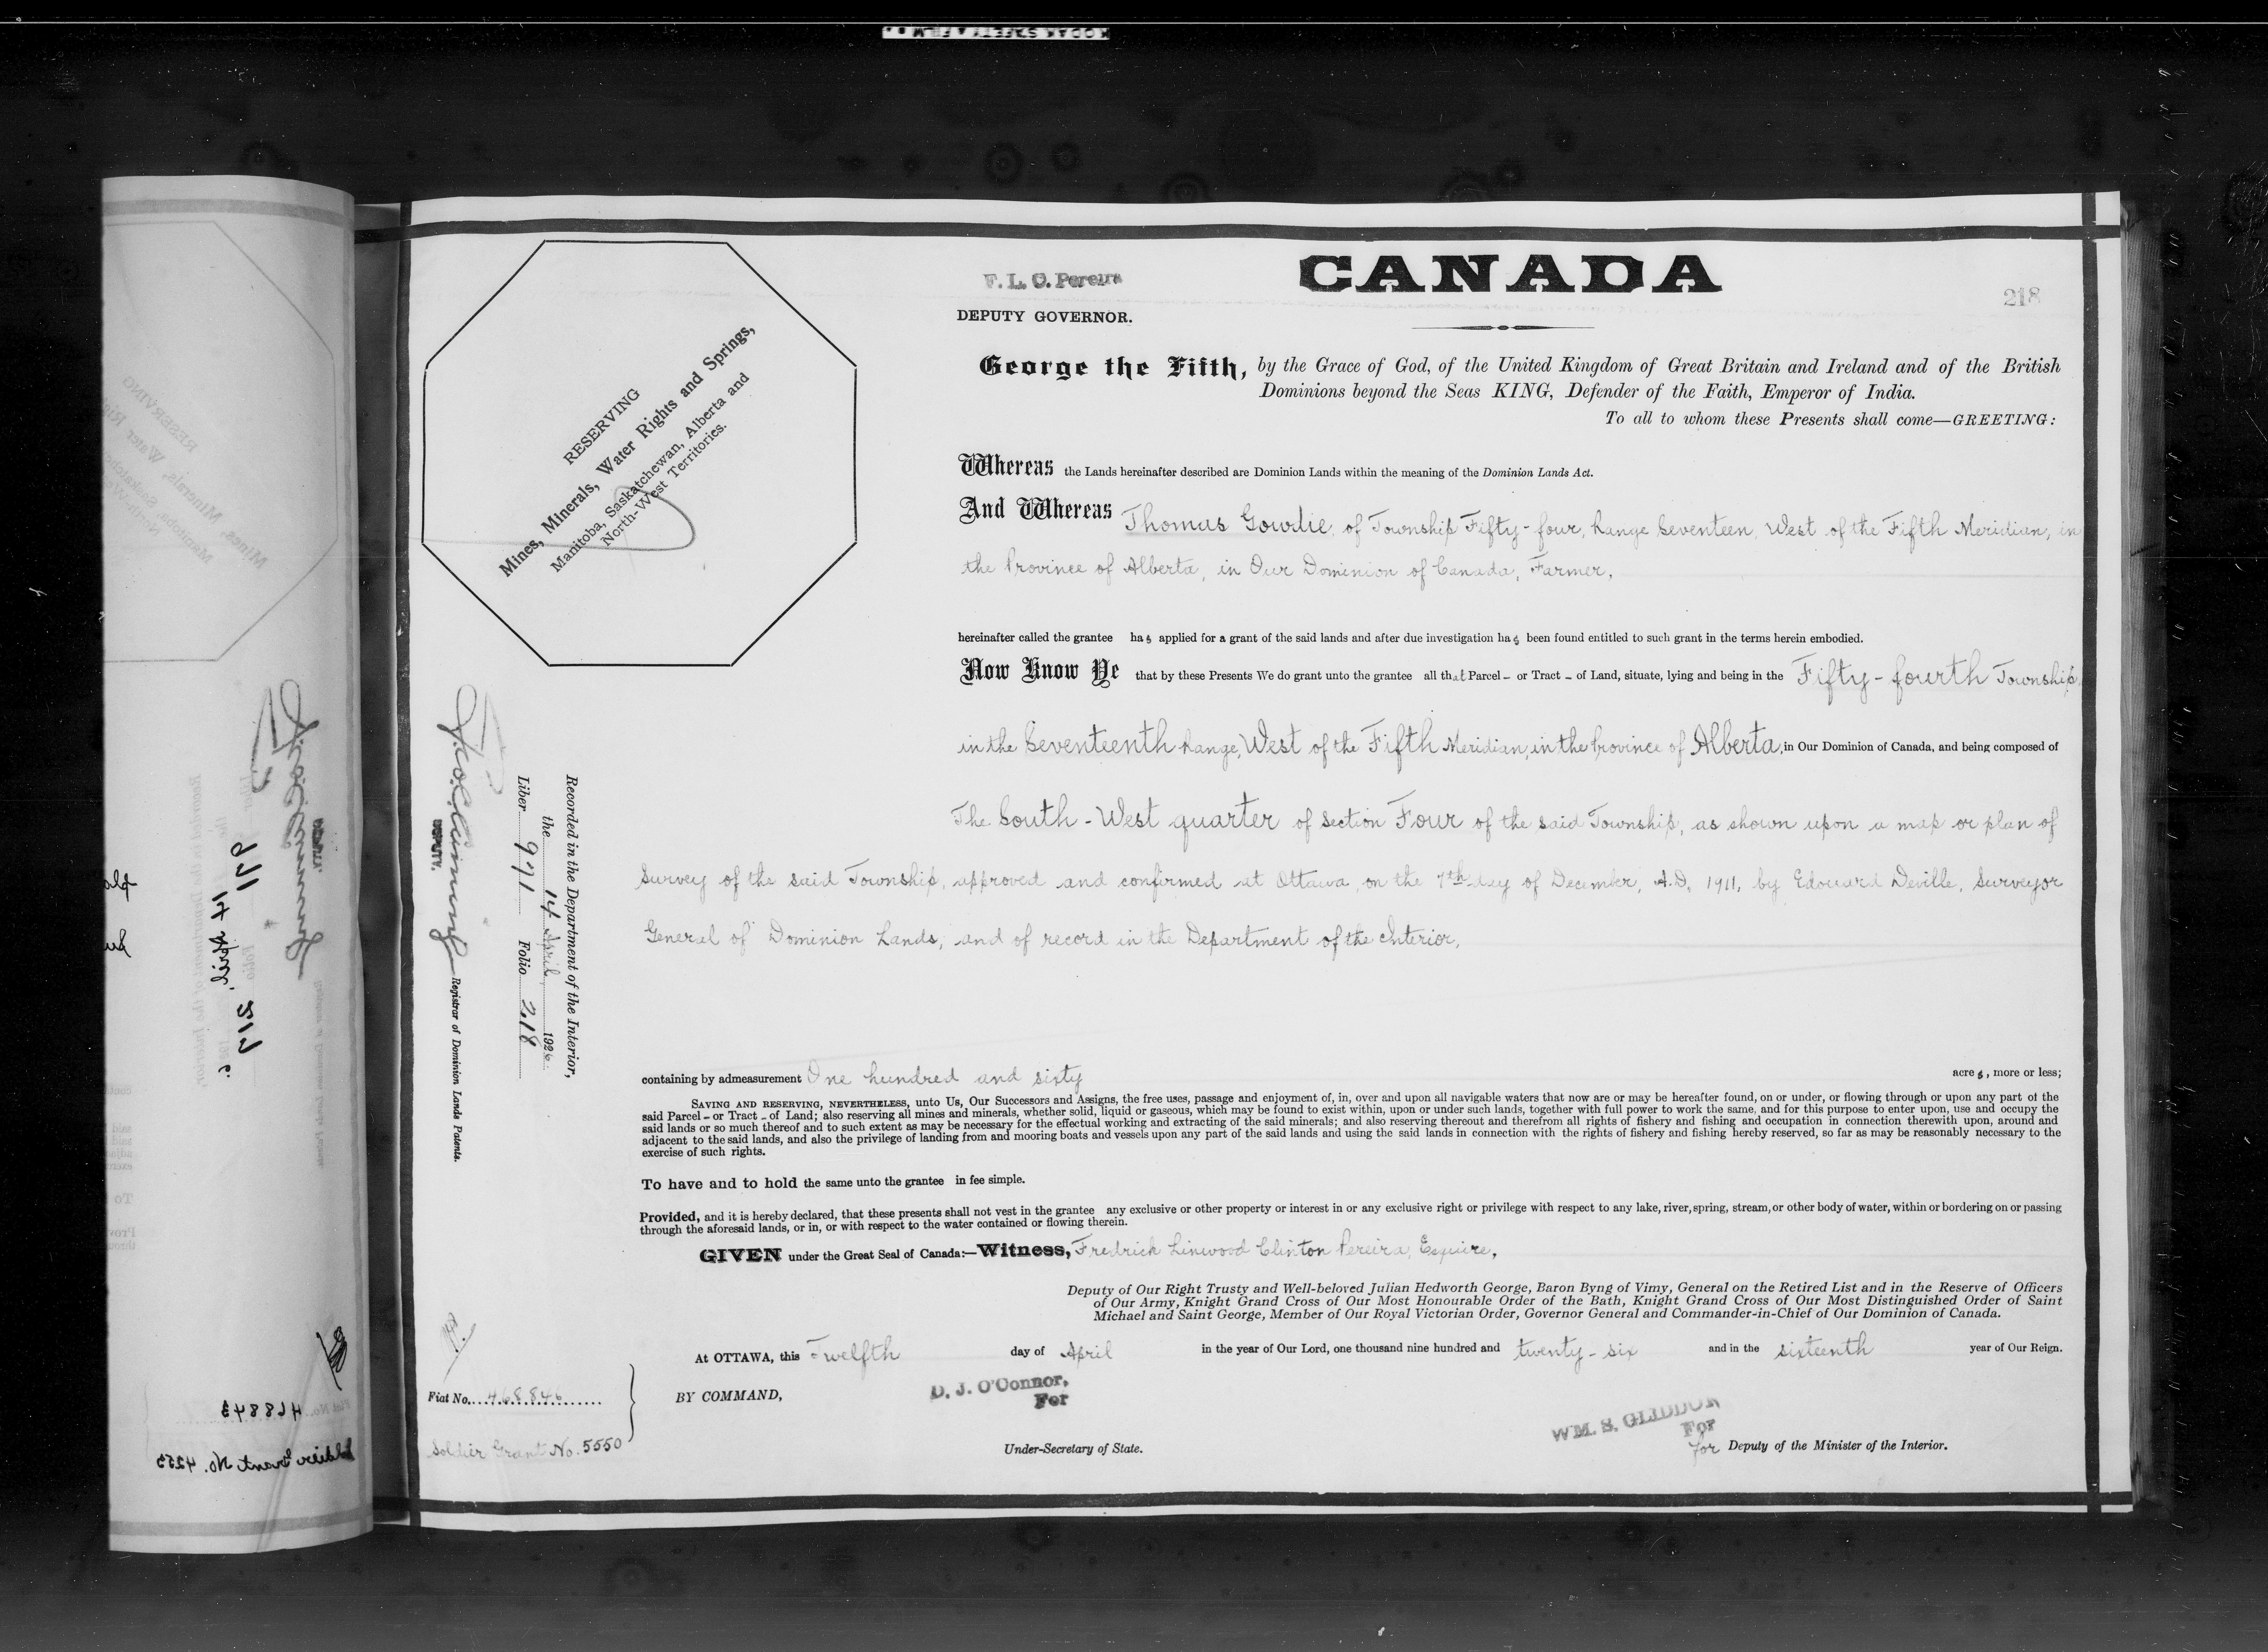 KODAK SAFETY FILM
F. L. C. Pereira
DEPUTY GOVERNOR.
CANADA
218
George the Fifth, by the Grace of God, of the United Kingdom of Great Britain and Ireland and of the British
Dominions beyond the Seas KING, Defender of the Faith, Emperor of India.
To all to whom these Presents shall come—GREETING:
RESERVING
Mines, Minerals, Water Rights and Springs,
Manitoba, Saskatchewan, Alberta and
North-West Territories.
Whereas the Lands hereinafter described are Dominion Lands within the meaning of the Dominion Lands Act.
And Whereas Thomas Gowdie, of Township Fifty-four, Range Seventeen, West of the Fifth Meridian, in
the Province of Alberta, in Our Dominion of Canada, Farmer,
hereinafter called the grantee has applied for a grant of the said lands and after due investigation has been found entitled to such grant in the terms herein embodied.
Now Know Ye that by these Presents We do grant unto the grantee all that Parcel – or Tract – of Land, situate, lying and being in the Fifty-fourth Township,
in the Seventeenth Range, West of the Fifth Meridian, in the Province of Alberta, in Our Dominion of Canada, and being composed of
The South-West quarter of Section Four of the said Township, as shown upon a map or plan of
Survey of the said Township, approved and confirmed at Ottawa, on the 7th day of December, A.D. 1911, by Edouard Deville, Surveyor
General of Dominion Lands, and of record in the Department of the Interior,
containing by admeasurement One hundred and sixty acres, more or less;
SAVING AND RESERVING, NEVERTHELESS, unto Us, Our Successors and Assigns, the free uses, passage and enjoyment of, in, over and upon all navigable waters that now are or may be hereafter found, on or under, or flowing through or upon any part of the
said Parcel – or Tract – of Land; also reserving all mines and minerals, whether solid, liquid or gaseous, which may be found to exist within, upon or under such lands, together with full power to work the same, and for this purpose to enter upon, use and occupy the
said lands or so much thereof and to such extent as may be necessary for the effectual working and extracting of the said minerals; and also reserving thereout and therefrom all rights of fishery and fishing and occupation in connection therewith upon, around and
adjacent to the said lands, and also the privilege of landing from and mooring boats and vessels upon any part of the said lands and using the said lands in connection with the rights of fishery and fishing hereby reserved, so far as may be reasonably necessary to the
exercise of such rights.
To have and to hold the same unto the grantee in fee simple.
Provided, and it is hereby declared, that these presents shall not vest in the grantee any exclusive or other property or interest in or any exclusive right or privilege with respect to any lake, river, spring, stream, or other body of water, within or bordering on or passing
through the aforesaid lands, or in, or with respect to the water contained or flowing therein.
GIVEN under the Great Seal of Canada:—Witness, Fredrick Linwood Clinton Pereira, Esquire,
Deputy of Our Right Trusty and Well-beloved Julian Hedworth George, Baron Byng of Vimy, General on the Retired List and in the Reserve of Officers
of Our Army, Knight Grand Cross of Our Most Honourable Order of the Bath, Knight Grand Cross of Our Most Distinguished Order of Saint
Michael and Saint George, Member of Our Royal Victorian Order, Governor General and Commander-in-Chief of Our Dominion of Canada.
At OTTAWA, this Twelfth day of April in the year of Our Lord, one thousand nine hundred and twenty-six and in the sixteenth year of Our Reign.
BY COMMAND,
D. J. O'Connor,
For
Under-Secretary of State.
WM. S. GLIDDON
For
for Deputy of the Minister of the Interior.
Recorded in the Department of the Interior,
the 14 April 1926.
Liber 971 Folio 218
DEPUTY.
Registrar of Dominion Lands Patents.
Fiat No. 468846
Soldier Grant No. 5550
14 April
971
217
468843
Soldier Grant No. 4253